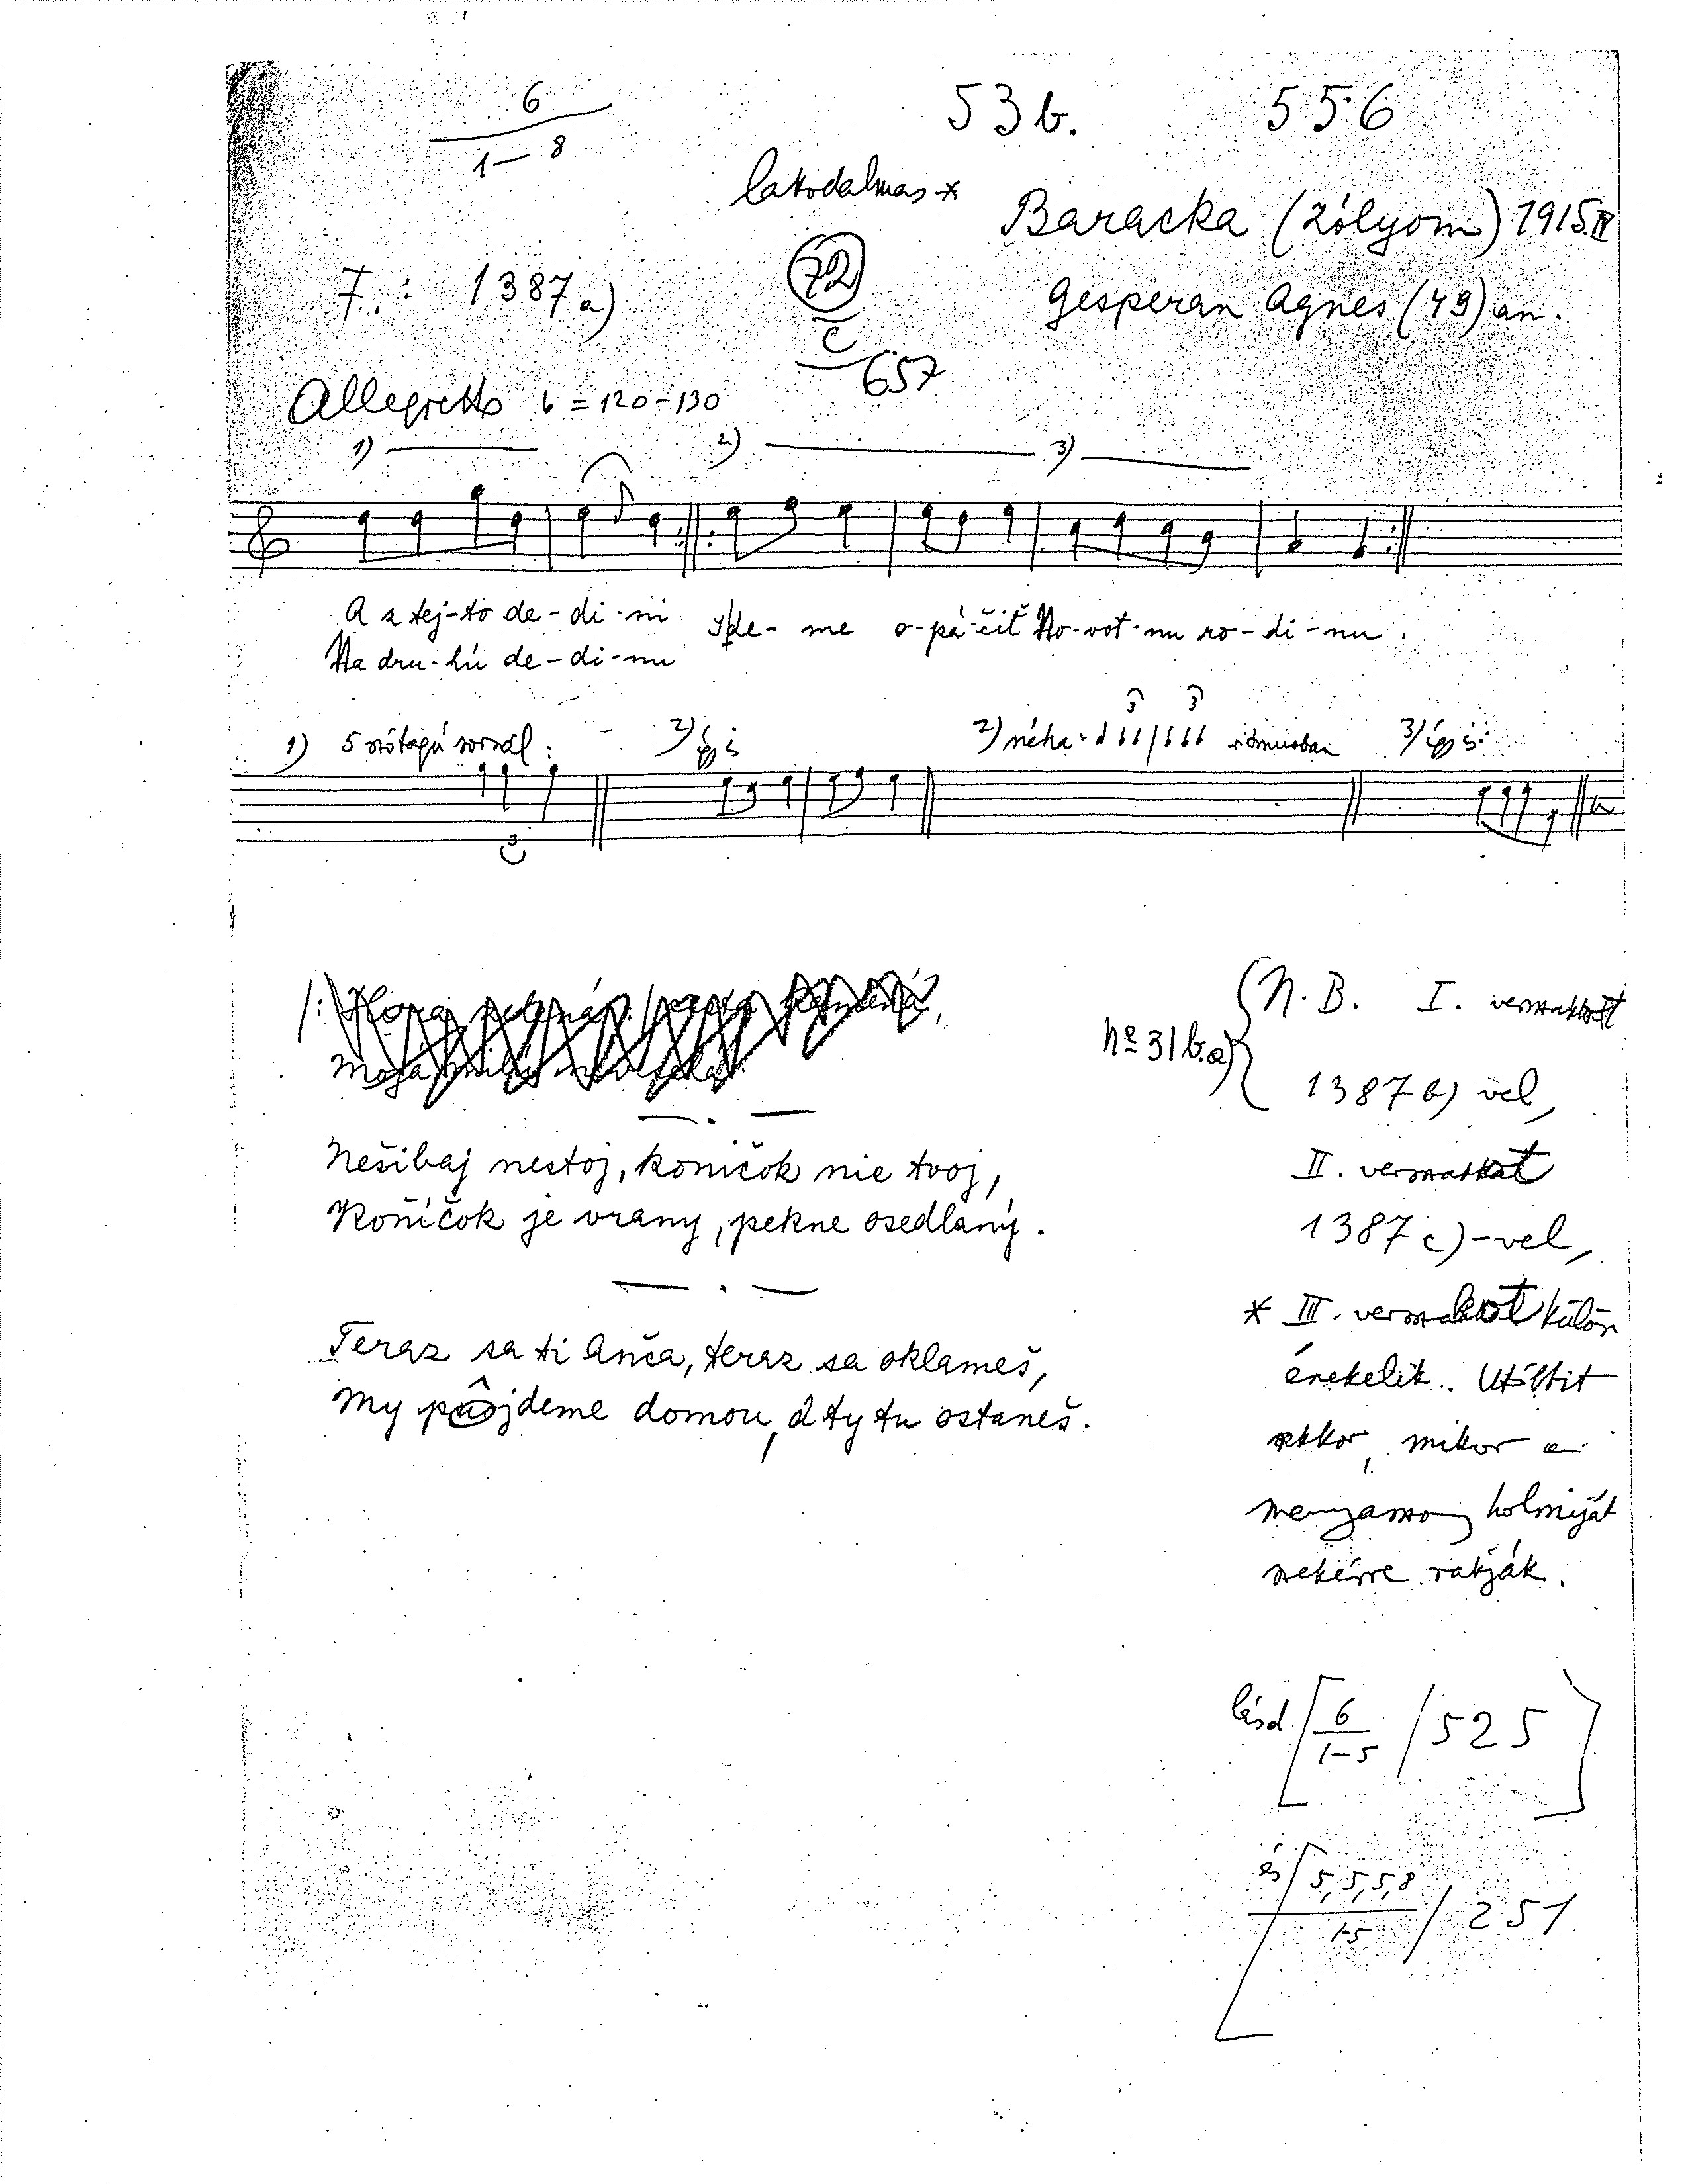 6
1–8
53b.
556
lakodalmas *
Baracka (Zólyom) 1915.IV
F.: 1387a)
72
c
657
Gesperan Agnes (49) an.
Allegretto = 120–130
1) 2) 3)
A z tej-to de-di-ni Ide-me o-pá-čiť Ho-vot-nu ro-di-nu.
Na dru-hú de-di-nu
1) 5 szótagú sornál: 2) így is 2) néha ritmusban 3) így is:
3 3
3
N.B. I. versszakot
No 31b.a)
1387b) vel,
Nešibaj nestoj, koničok nie tvoj,
II. versszakot
Koňíčok je vrany, pekne osedlaný.
1387c)-vel,
* III. versszakot külön
Teraz sa ti Anča, teraz sa oklameš,
énekelik. Utóbbit
My pôjdeme domou, a ty tu ostaneš.
akkor, mikor a
menyasszony holmiját
szekérre rakják.
lásd [6/1–5 / 525]
és [5,5,5,8/1-5 / 251